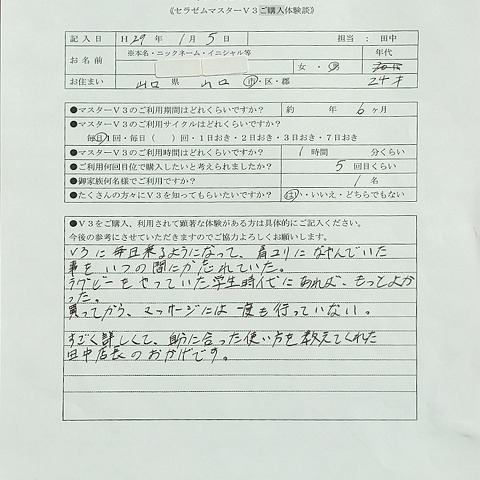 《セラゼムマスターV3ご購入体験談》
記入日 H29年 1月 5日 担当：田中
お名前 ※本名・ニックネーム・イニシャル等 女・男 年代
お住まい 山口 県 山口 市・区・郡 24才
●マスターV3のご利用期間はどれくらいですか？ 約 年 6ヶ月
●マスターV3のご利用サイクルはどれくらいですか？
毎日1回・毎日（ ）回・1日おき・2日おき・3日おき・7日おき
●マスターV3のご利用時間はどれくらいですか？ 1時間 分くらい
●ご利用何回目位で購入したいと考えられましたか？ 5回目くらい
●御家族何名様でご利用ですか？ 1名
●たくさんの方々にV3を知ってもらいたいですか？ はい・いいえ・どちらでもない
●V3をご購入、利用されて顕著な体験がある方は具体的にご記入ください。
今後の参考にさせていただきますのでご協力よろしくお願いします。
V3に毎日来るようになって、肩コリになやんでいた
事をいつの間にか忘れていた。
ラグビーをやっていた学生時代にあれば、もっとよか
った。
買ってから、マッサージには一度も行っていない。
すごく詳しくて、自分に合った使い方を教えてくれた
田中店長のおかげです。